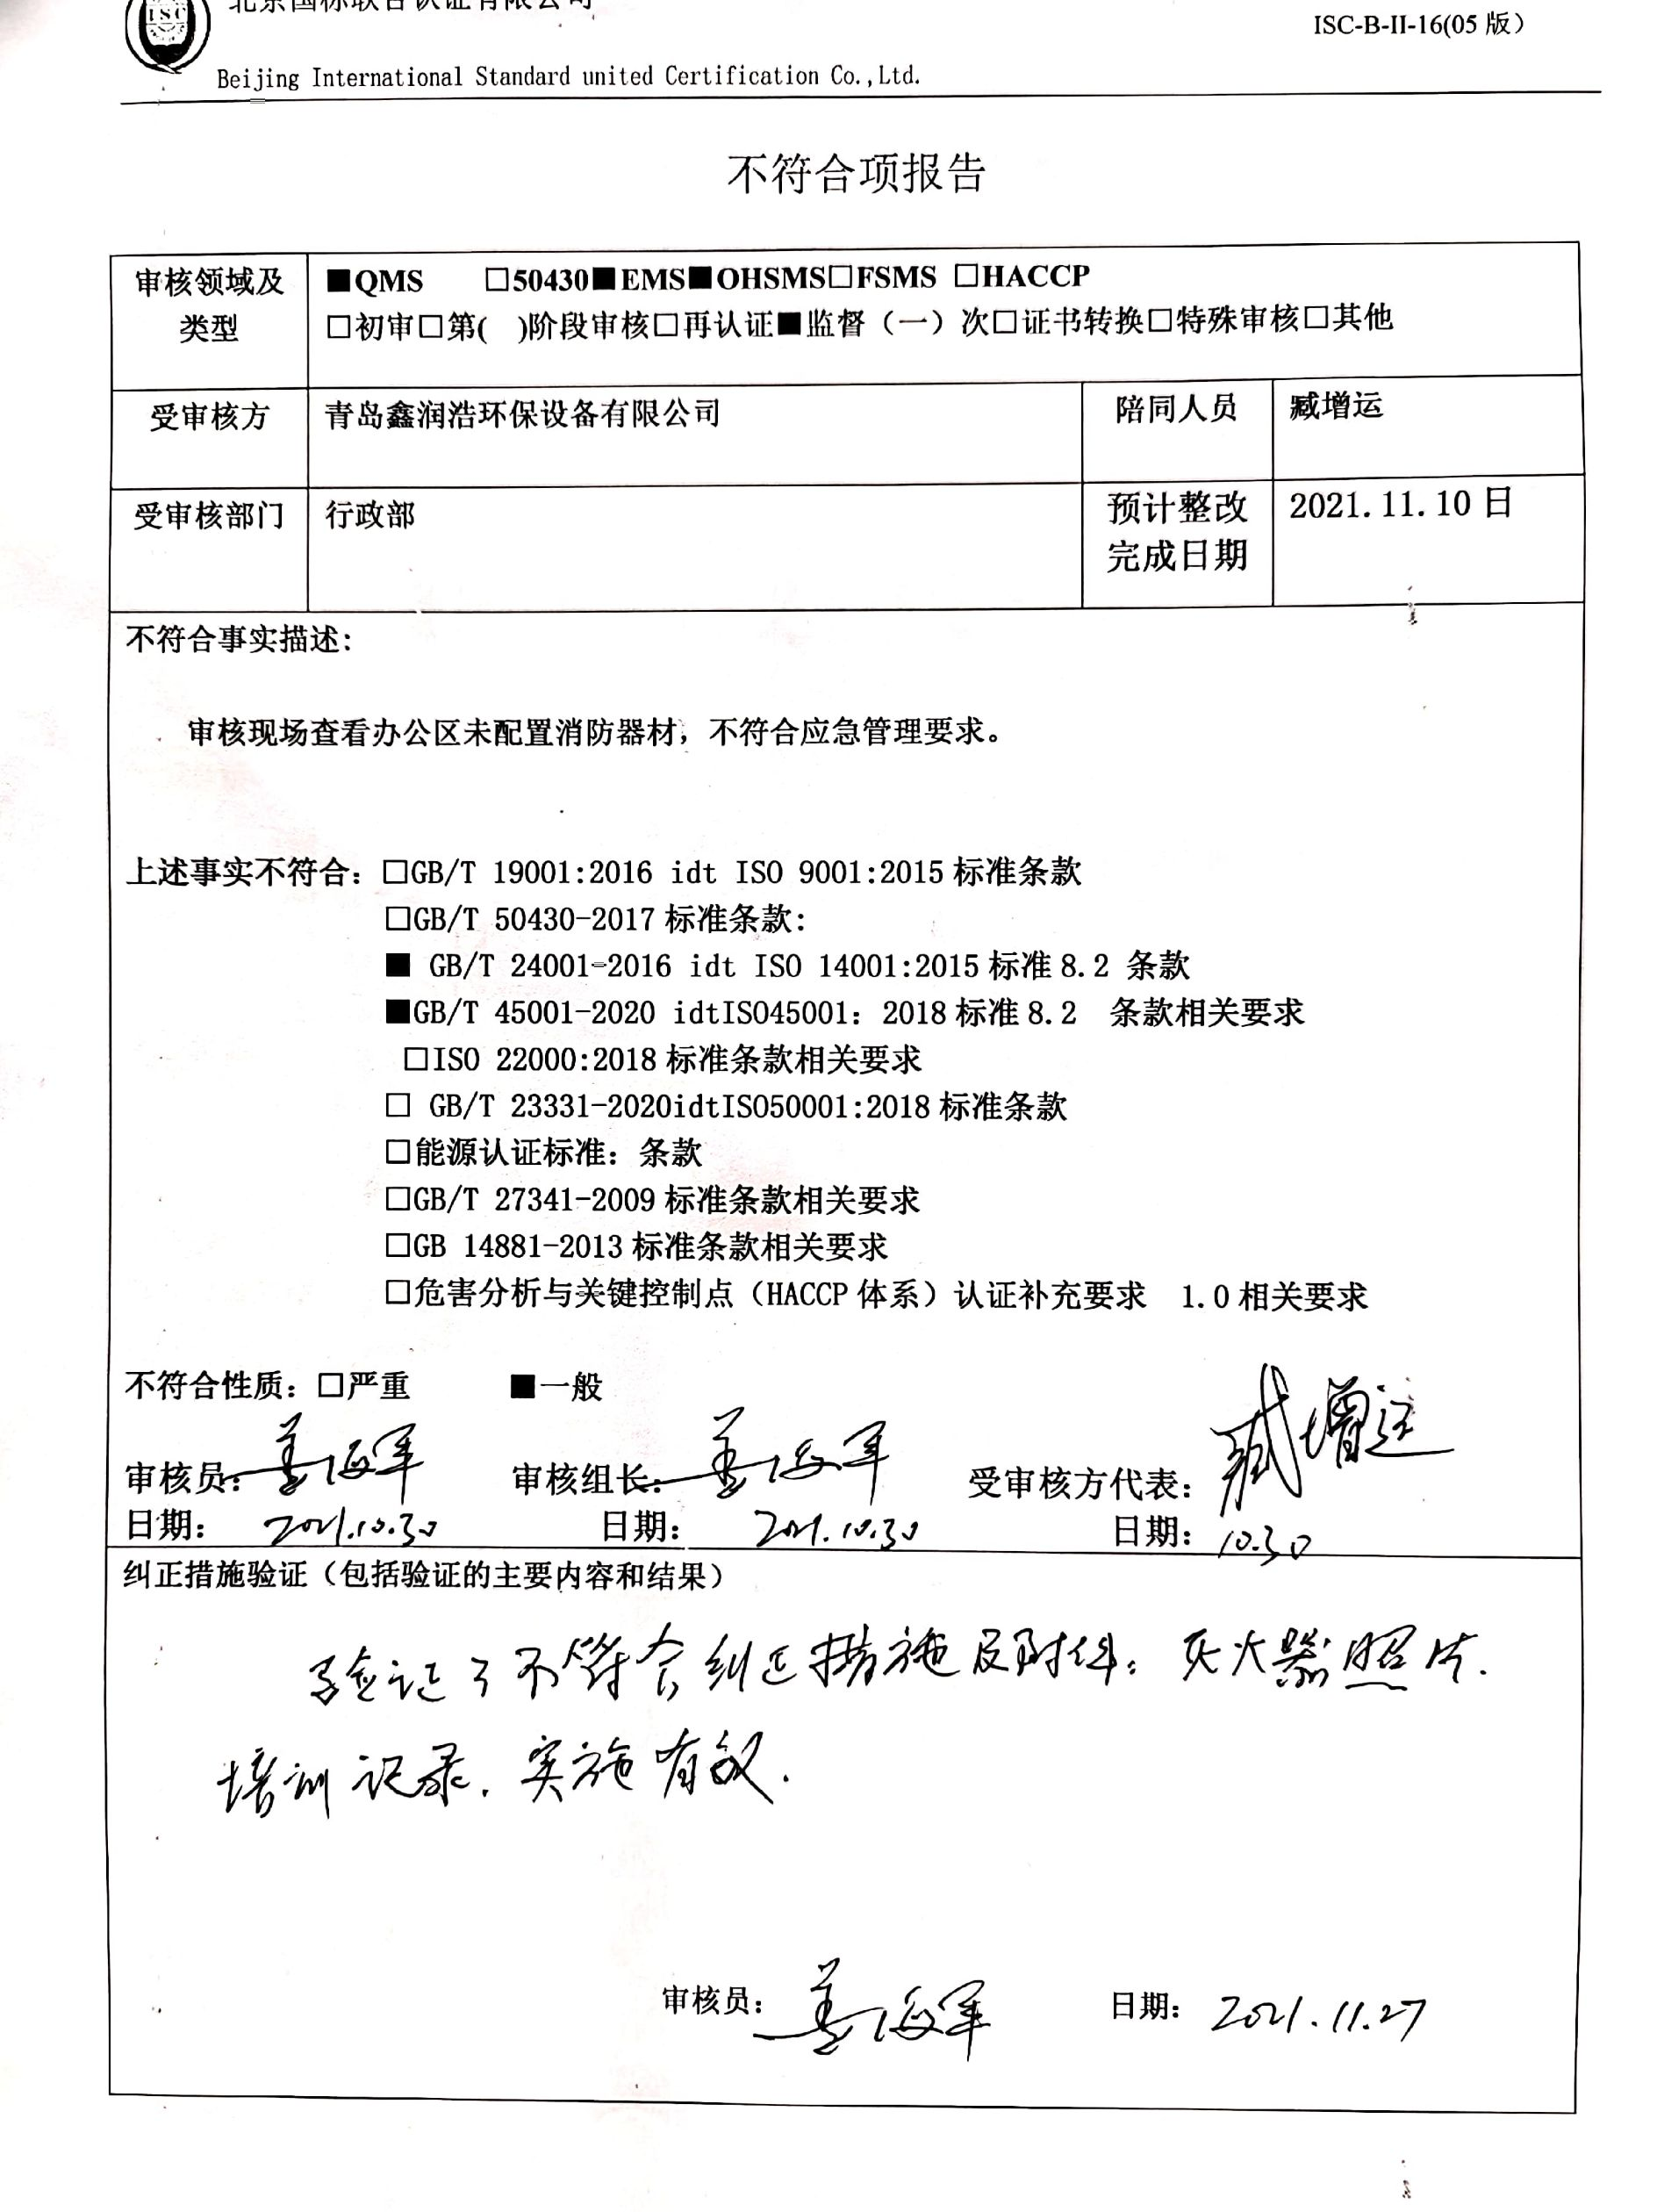 ISC
北京国标联合认证有限公司
ISC-B-II-16(05 版）
Beijing International Standard united Certification Co.,Ltd.
不符合项报告
审核领域及类型
■QMS □50430■EMS■OHSMS□FSMS □HACCP
□初审□第( )阶段审核□再认证■监督（一）次□证书转换□特殊审核□其他
受审核方
青岛鑫润浩环保设备有限公司
陪同人员
臧增运
受审核部门
行政部
预计整改
完成日期
2021.11.10 日
不符合事实描述:
审核现场查看办公区未配置消防器材，不符合应急管理要求。
上述事实不符合：□GB/T 19001:2016 idt ISO 9001:2015 标准条款
□GB/T 50430-2017 标准条款：
■ GB/T 24001-2016 idt ISO 14001:2015 标准 8.2 条款
■GB/T 45001-2020 idtISO45001：2018 标准 8.2 条款相关要求
□ISO 22000:2018 标准条款相关要求
□ GB/T 23331-2020idtISO50001:2018 标准条款
□能源认证标准：条款
□GB/T 27341-2009 标准条款相关要求
□GB 14881-2013 标准条款相关要求
□危害分析与关键控制点（HACCP 体系）认证补充要求 1.0 相关要求
不符合性质：□严重 ■一般
审核员：姜海军 审核组长：姜海军 受审核方代表：臧增运
日期： 2021.10.30 日期： 2021.10.30 日期：10.30
纠正措施验证（包括验证的主要内容和结果）
验证了不符合纠正措施及附件：灭火器照片.
培训记录. 实施有效.
审核员：姜海军 日期：2021.11.27